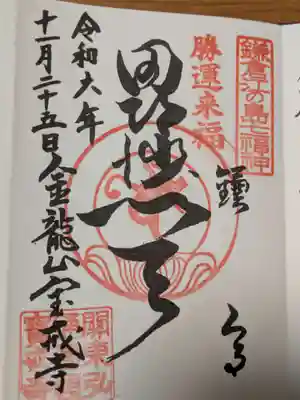 鎌倉江の島七福神
勝運来福
毘沙門天
鎌
倉
令和六年
十一月二十五日
金龍山宝戒寺